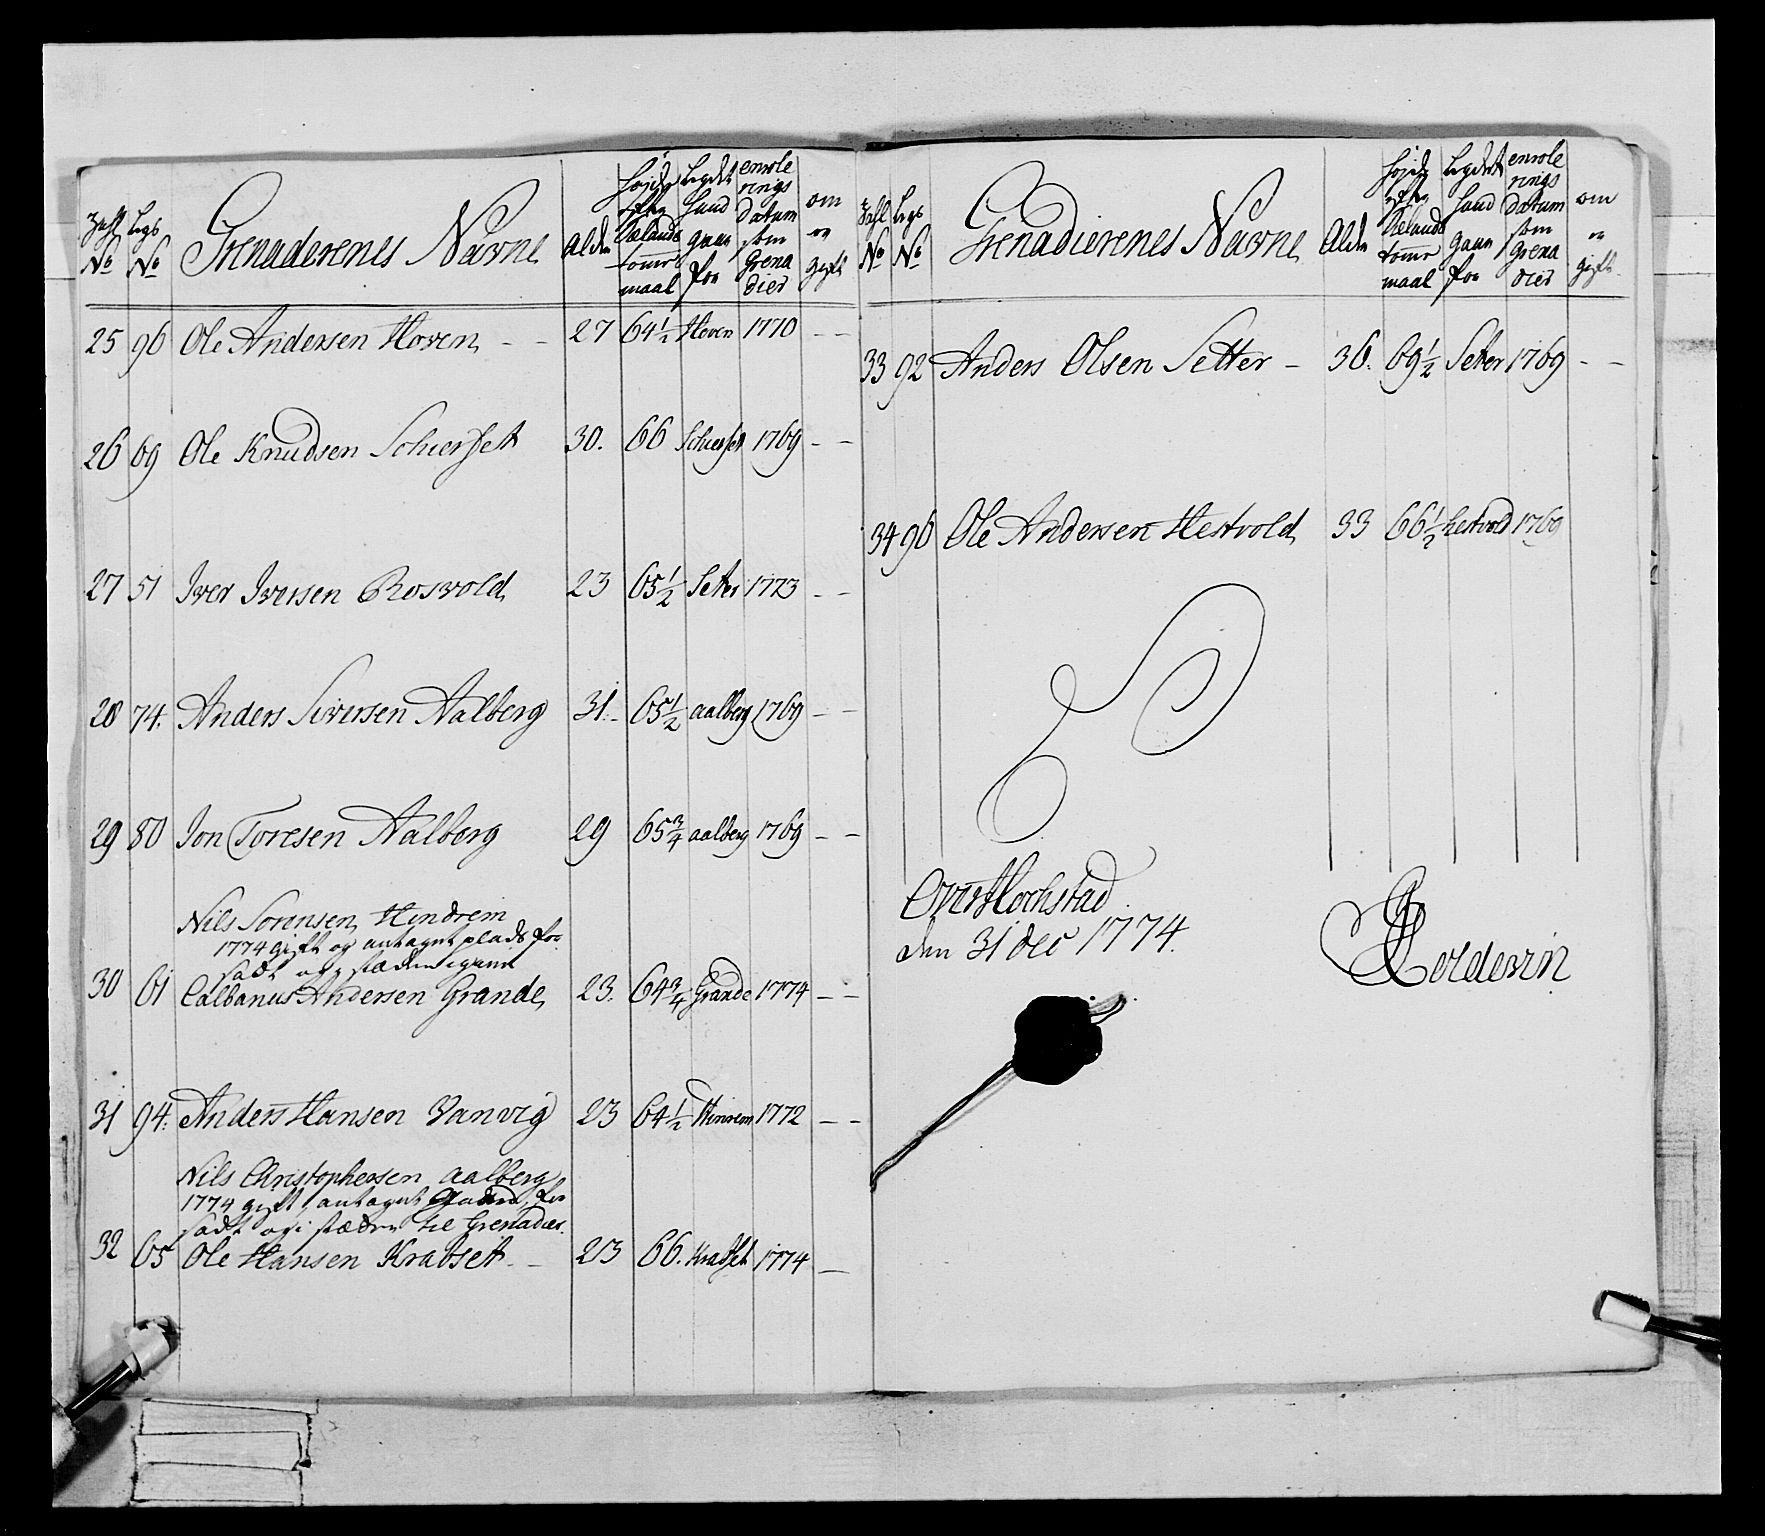 Zahl No
Legs No
Grenaderenes Navne
Alder
højde efter Siælands tomr maal
Legdet hand gaar for
enrole rings Datum som Grena dier
om er gift
25 96 Ole Andersen Hoven - - 27 64½ Hoven 1770 - -
26 69 Ole Knudsen Schierset 30. 66 Schierset 1769 - -
27 51 Iver Iversen Rosvold 23 65½ Seter 1773 - -
28 74. Anders Siversen Aalberg 31. 65½ aalberg 1769 - -
29 80 Jon Toresen Aalberg 29 65¾ aalberg 1769 - -
Nils Sorensen Hindrem
1774 gift og antaget plads for
sadt og i stæden igien
30 61 Calbanus Andersen Grande 23. 64¾ Grande 1774 - -
31 94. Anders Hansen Vanvig 23 64½ Hinrem 1772 - -
Nils Christophersen Aalberg
1774 gift, antaget for
sadt og i stæden til Grenadier
32 65 Ole Hansen Krabset - 23 66. Krabset 1774 -
Zahl No
Legs No
Grenadierenes Navne
Alder
højde efter Siælands tomr maal
Legdet hand gaar for
enrole rings Datum som Grena dier
om er gift
33 92 Anders Olsen Setter - 36. 69½ Seter 1769 - -
34 96 Ole Andersen Hestvold 33 66½ hestvold 1769
Over Hochstad
den 31 dec 1774.
Coldevin